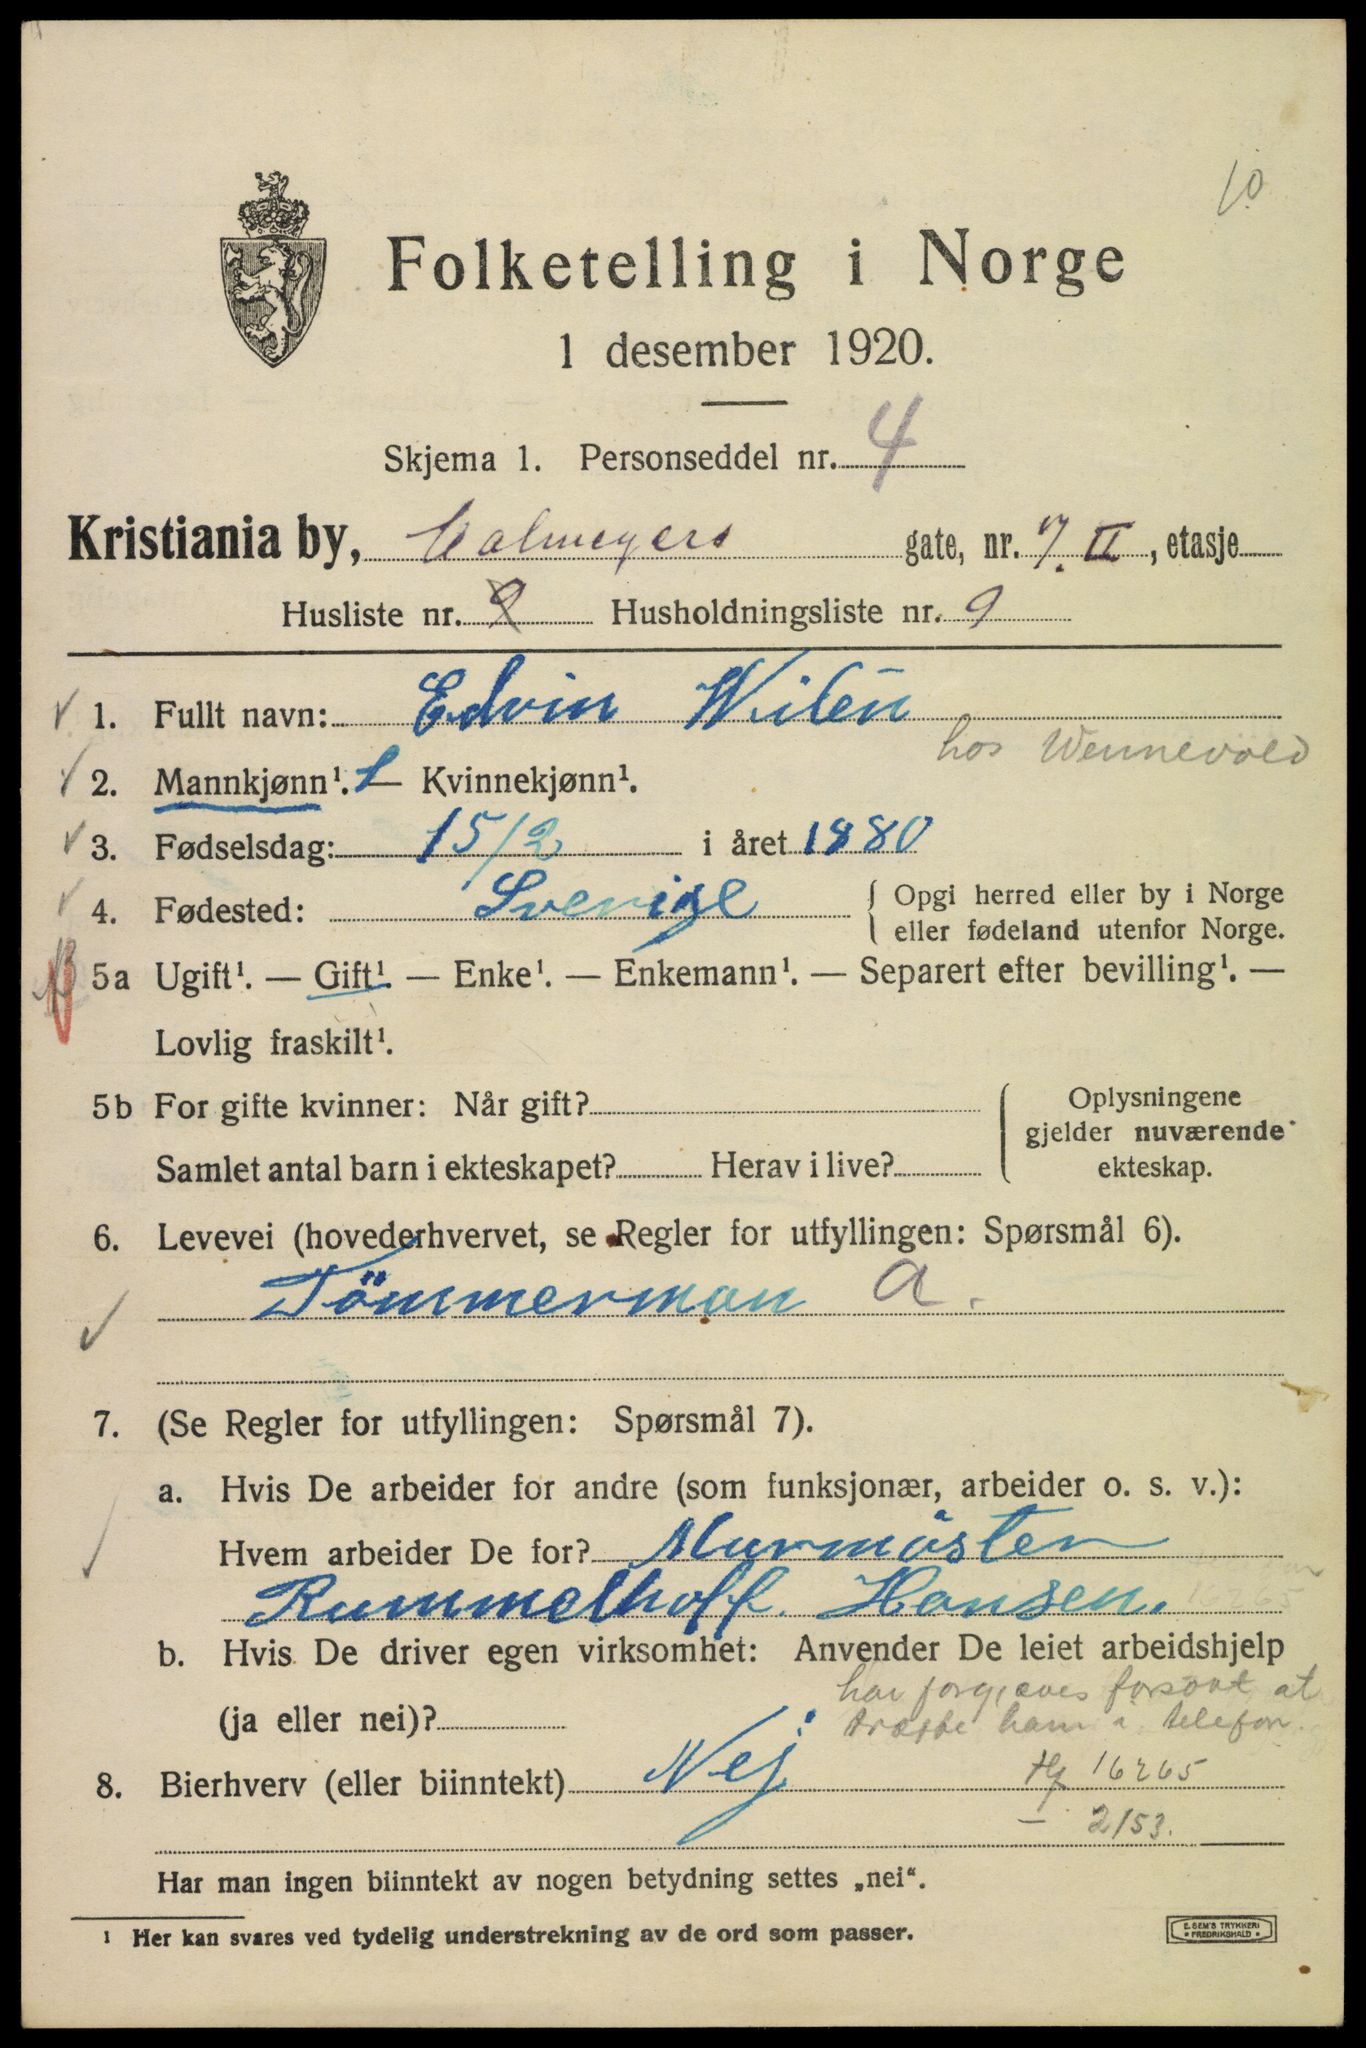 10
Folketelling i Norge
1 desember 1920.
Skjema 1. Personseddel nr. 4
Kristiania by, Calmeyers gate, nr. 7. II, etasje
Husliste nr. 9 Husholdningsliste nr. 9
1. Fullt navn: Edvin Wilén
hos Wennevold
2. Mannkjønn¹. 1 — Kvinnekjønn¹.
3. Fødselsdag: 15/2 i året 1880
4. Fødested: Sverige { Opgi herred eller by i Norge
eller fødeland utenfor Norge.
5a Ugift¹. — Gift¹. — Enke¹. — Enkemann¹. — Separert efter bevilling¹. —
Lovlig fraskilt¹.
5b For gifte kvinner: Når gift? { Oplysningene
gjelder nuværende
Samlet antal barn i ekteskapet? Herav i live? ekteskap.
6. Levevei (hovederhvervet, se Regler for utfyllingen: Spørsmål 6).
Tömmerman a.
7. (Se Regler for utfyllingen: Spørsmål 7).
a. Hvis De arbeider for andre (som funksjonær, arbeider o. s. v.):
Hvem arbeider De for? Murmåster
Rummelhoff. Hansen. 16265
b. Hvis De driver egen virksomhet: Anvender De leiet arbeidshjelp
har forgjæves forsøkt at
(ja eller nei)? træffe ham i telefon.
8. Bierhverv (eller biinntekt) Nej 16265
– 2153.
Har man ingen biinntekt av nogen betydning settes „nei“.
¹ Her kan svares ved tydelig understrekning av de ord som passer.
E. SEM'S TRYKKERI
• FREDRIKSHALD •